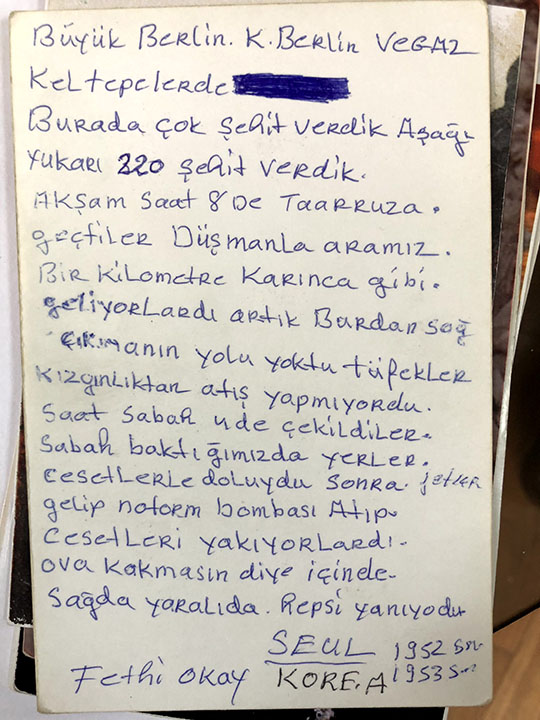 Büyük Berlin. K. Berlin VEGAZ
Keltepelerde
Burada çok şehit verdik Aşağı
yukarı 220 şehit verdik.
Akşam saat 8 De Taarruza.
geçtiler Düşmanla aramız.
Bir kilometre karınca gibi.
geliyorlardı artık Burdan sağ
çıkmanın yolu yoktu tüfekler
kızgınlıktan atış yapmıyordu.
Saat sabah 4de çekildiler.
Sabah baktığımızda yerler.
cesetlerle doluydu sonra. jetler
gelip noform bombası Atıp.
Cesetleri yakıyorlardı.
ova kakmasın diye içinde.
Sağda yaralıda. Repsi yanıyodu
SEUL 1952
Fethi OKAY KORE.A 1953